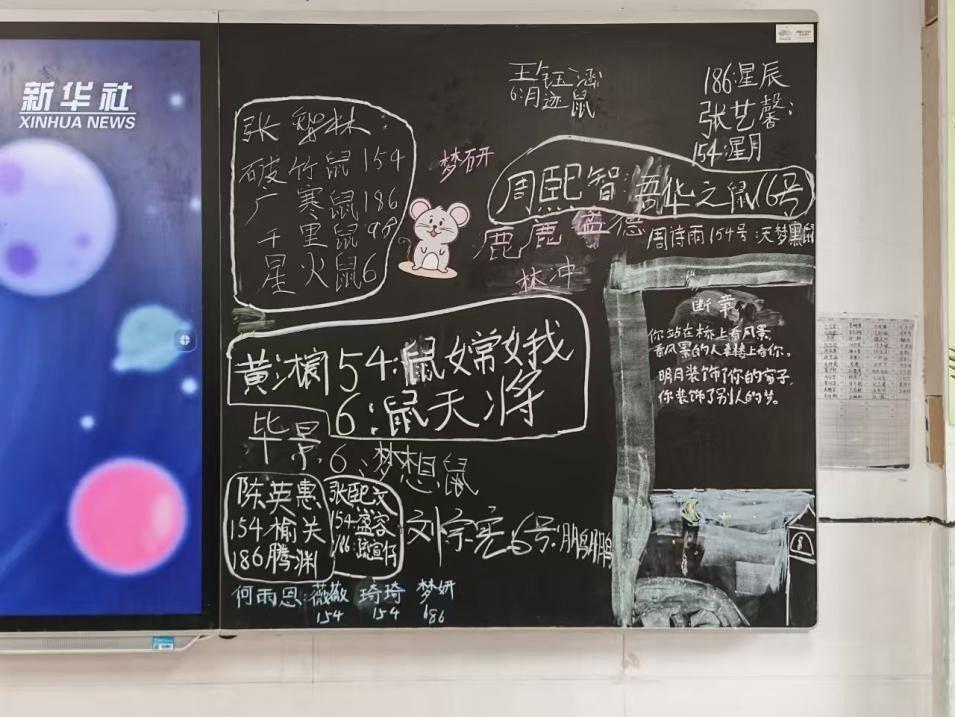 新华社
XINHUA NEWS
王钰涵
6:月迹鼠
186:星辰
张艺馨:
154:星月
张 林:
破竹鼠154
广寒鼠186
千里鼠98
星火鼠6
梦研
周熙智:吾华之鼠16号
鹿鹿 孟德
周诗雨154号:天梦黑鼠
林冲
断章:
你站在桥上看风景,
看风景的人在楼上看你。
明月装饰了你的窗子,
你装饰了别人的梦。
黄 54:鼠嫦娥
6:鼠天将
毕景
6:梦想鼠
陈英惠
154榆关
186腾渊
张熙文
154:盛容
186:
刘宗 6号:鹏鹏
何雨恩:薇薇 琦琦 梦妍
154 154 186